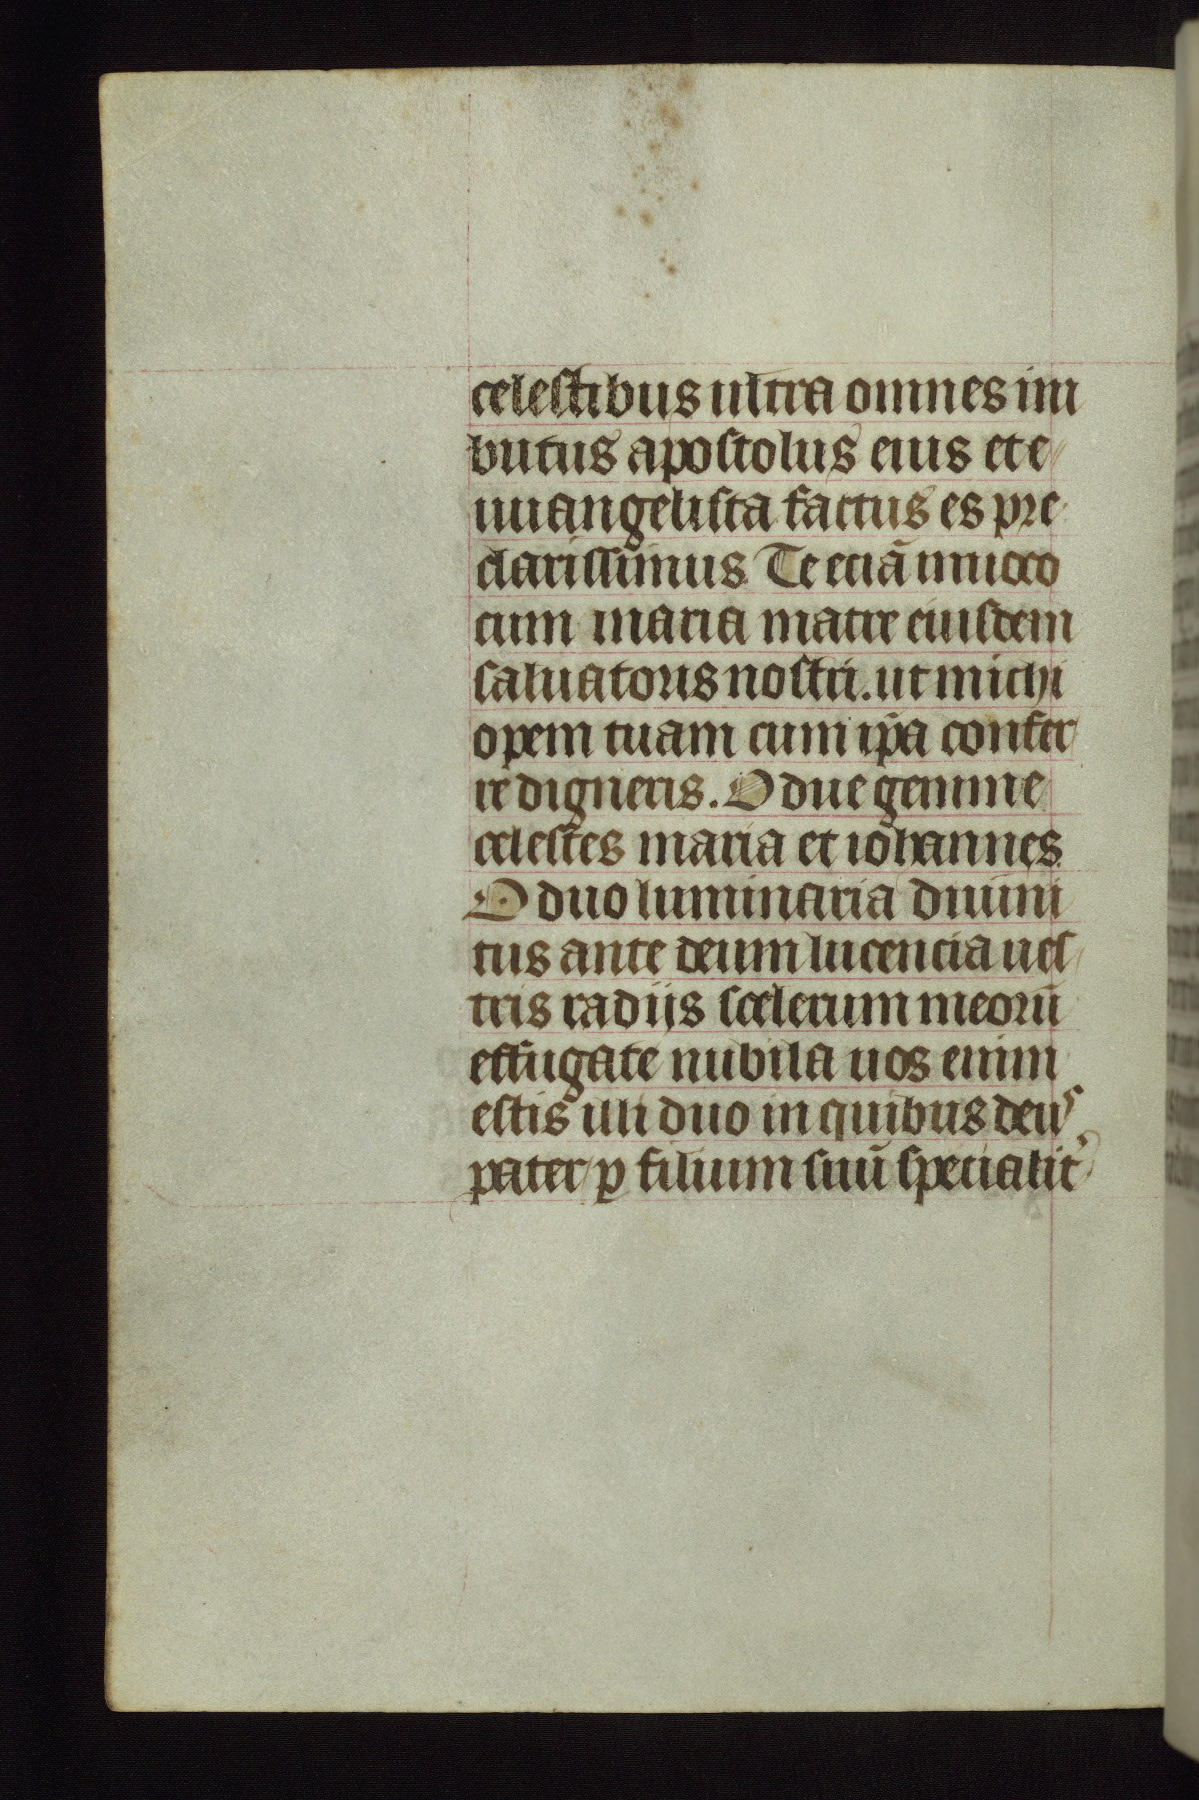 celestibus ultra omnes im
butus apostolus eius et e
uuangelista factus es pre
clarissimus Te eciā inuoco
cum maria matre eiusdem
saluatoris nostri. ut michi
opem tuam cum ip̄a confer
re digneris. O due gemme
celestes maria et iohannes
O duo luminaria diuini
tus ante deum lucencia ues
tris radijs scelerum meorū
effugate nubila uos enim
estis illi duo in quibus deus
pater ꝑ filium suū specialit᾽